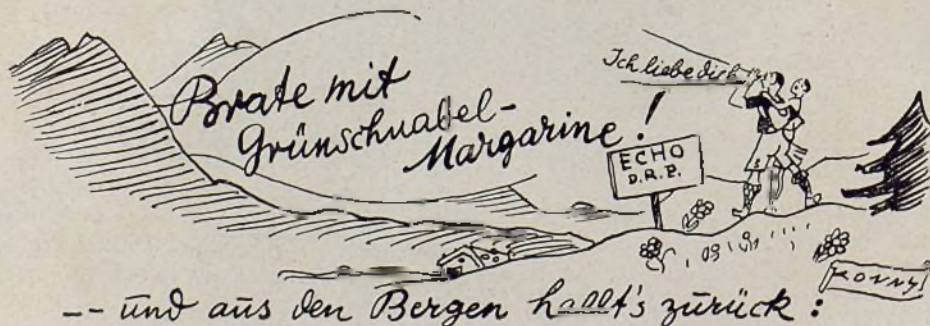 Brate mit
Grünschnabel-
Margarine!
Ich liebe dich
ECHO
D.R.P.
KONNY
-- und aus den Bergen hallt's zurück: